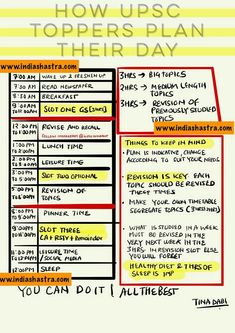 HOW UPSC
TOPPERS PLAN
THEIR DAY
www.indiashastra.com
7:00 AM WAKE UP & FRESHEN UP
7:30 AM READ NEWSPAPER
8:30 AM BREAKFAST
9:00 AM SLOT ONE GS
12:00 PM REVISE AND RECALL
1:00 PM LUNCH TIME
2:00 PM LEISURE TIME
SLOT TWO OPTIONAL
REVISION OF
TOPICS
8:00 PM DINNER TIME
9:00 PM SLOT THREE
CA + REMAINDER
LEISURE TIME
/ SOCIAL MEDIA
SLEEP
www.indiashastra.com
3HRS → BIG TOPICS
2HRS → MEDIUM LENGTH
TOPICS
3HRS → REVISION OF
PREVIOUSLY STUDIED
TOPICS
www.indiashastra.com
THINGS TO KEEP IN MIND
PLAN IS INDICATIVE, CHANGE
ACCORDING TO SUIT YOUR NEEDS
REVISION IS KEY. EACH
TOPIC SHOULD BE REVISED
THREE TIMES
MAKE YOUR OWN TIMETABLE
SEGREGATE TOPICS (3HRS)
WHAT IS STUDIED IN A WEEK
MUST BE REVISED IN THE
VERY NEXT WEEK IN THE
3HRS IN REVISION SLOT ELSE
YOU WILL FORGET
HEALTHY DIET & 7HRS OF
SLEEP IS IMP
YOU CAN DO IT | ALL THE BEST
TINA DABI